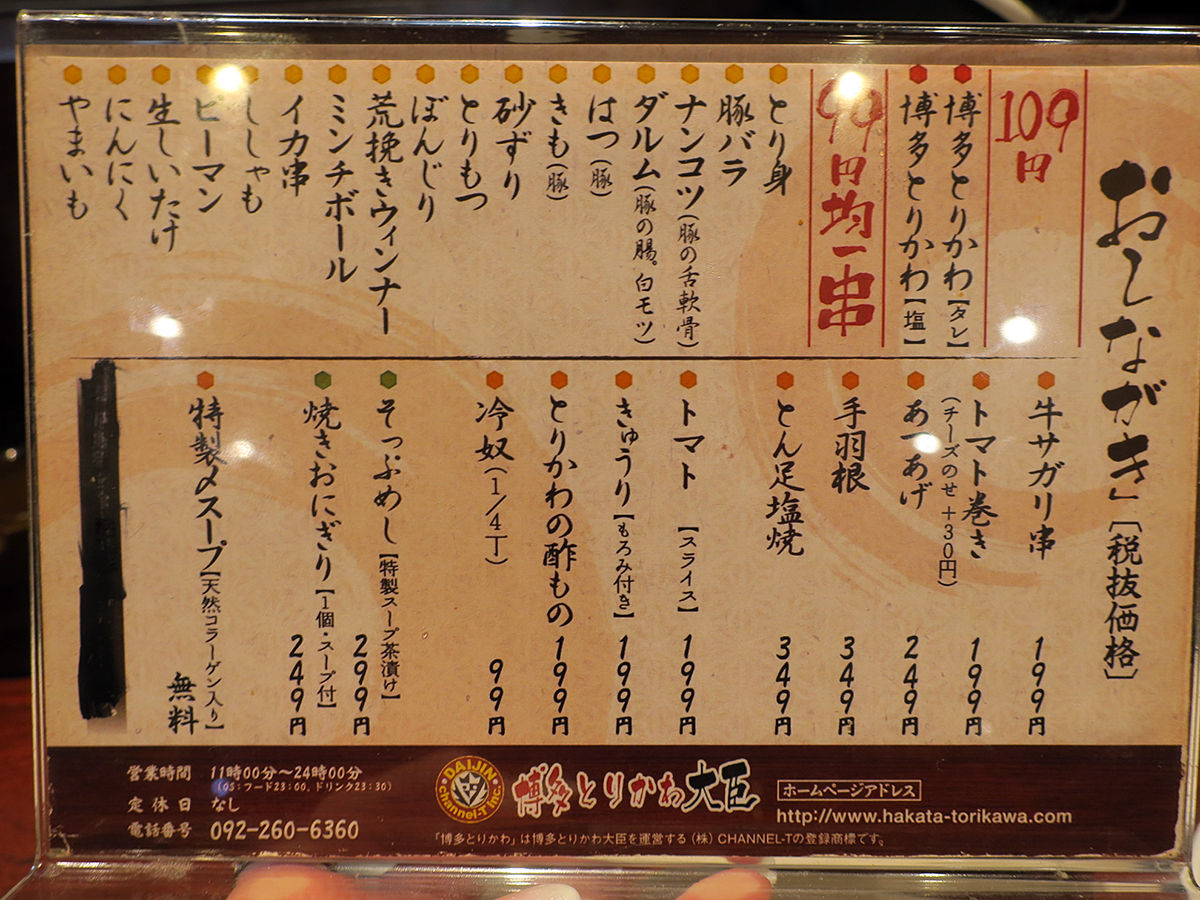 おしながき」[税抜価格]
109円
博多とりかわ【タレ】
博多とりかわ【塩】
99円均一串
とり身
豚バラ
ナンコツ(豚の舌軟骨)
ダルム(豚の腸。白モツ)
はつ(豚)
きも(豚)
砂ずり
とりもつ
ぼんじり
荒挽きウィンナー
ミンチボール
イカ串
ししゃも
ピーマン
生しいたけ
にんにく
やまいも
牛サガリ串 199円
トマト巻き 199円
(チーズのせ+30円)
あつあげ 249円
手羽根 349円
とん足塩焼 349円
トマト【スライス】 199円
きゅうり【もろみ付き】 199円
とりかわの酢もの 199円
冷奴(1/4丁) 99円
そっぷめし【特製スープ茶漬け】 299円
焼きおにぎり【1個・スープ付】 249円
特製〆スープ【天然コラーゲン入り】 無料
営業時間 11時00分〜24時00分
(OS:フード23:00、ドリンク23:30)
定休日 なし
電話番号 092-260-6360
DAIJIN channel-T inc.
博多とりかわ大臣
ホームページアドレス
http://www.hakata-torikawa.com
「博多とりかわ」は博多とりかわ大臣を運営する(株)CHANNEL-Tの登録商標です。